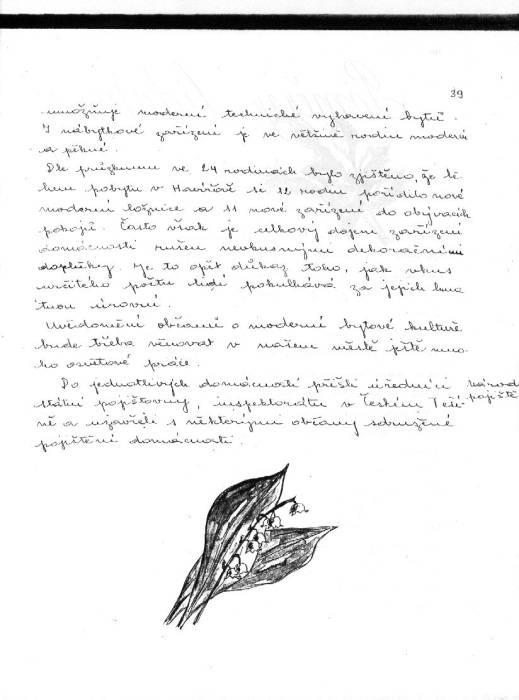 39
umožňuje moderní technické vybavení bytů.
I nábytkové zařízení je ve většině rodin moderní
a pěkné.
Dle průzkumu ve 24 rodinách bylo zjištěno, že bě-
hem pobytu v Havířově si 12 rodin pořídilo nové
moderní ložnice a 11 nové zařízení do obývacích
pokojů. Často však je celkový dojem zařízení
domácnosti rušen nevkusnými dekoračními
doplňky. Je to opět důkaz toho, jak vkus
určitého počtu lidí pokulhává za jejich hmo
tnou úrovní.
Uvědomění občanů o moderní bytové kultuře
bude třeba věnovat v našem městě ještě mno-
ho osvětové práce.
Do jednotlivých domácností přišli úředníci
státní pojišťovny, inspektorátu v Českém Těší-
ně a uzavřeli s některými občany sdružené
pojištění domácností.
pojiště